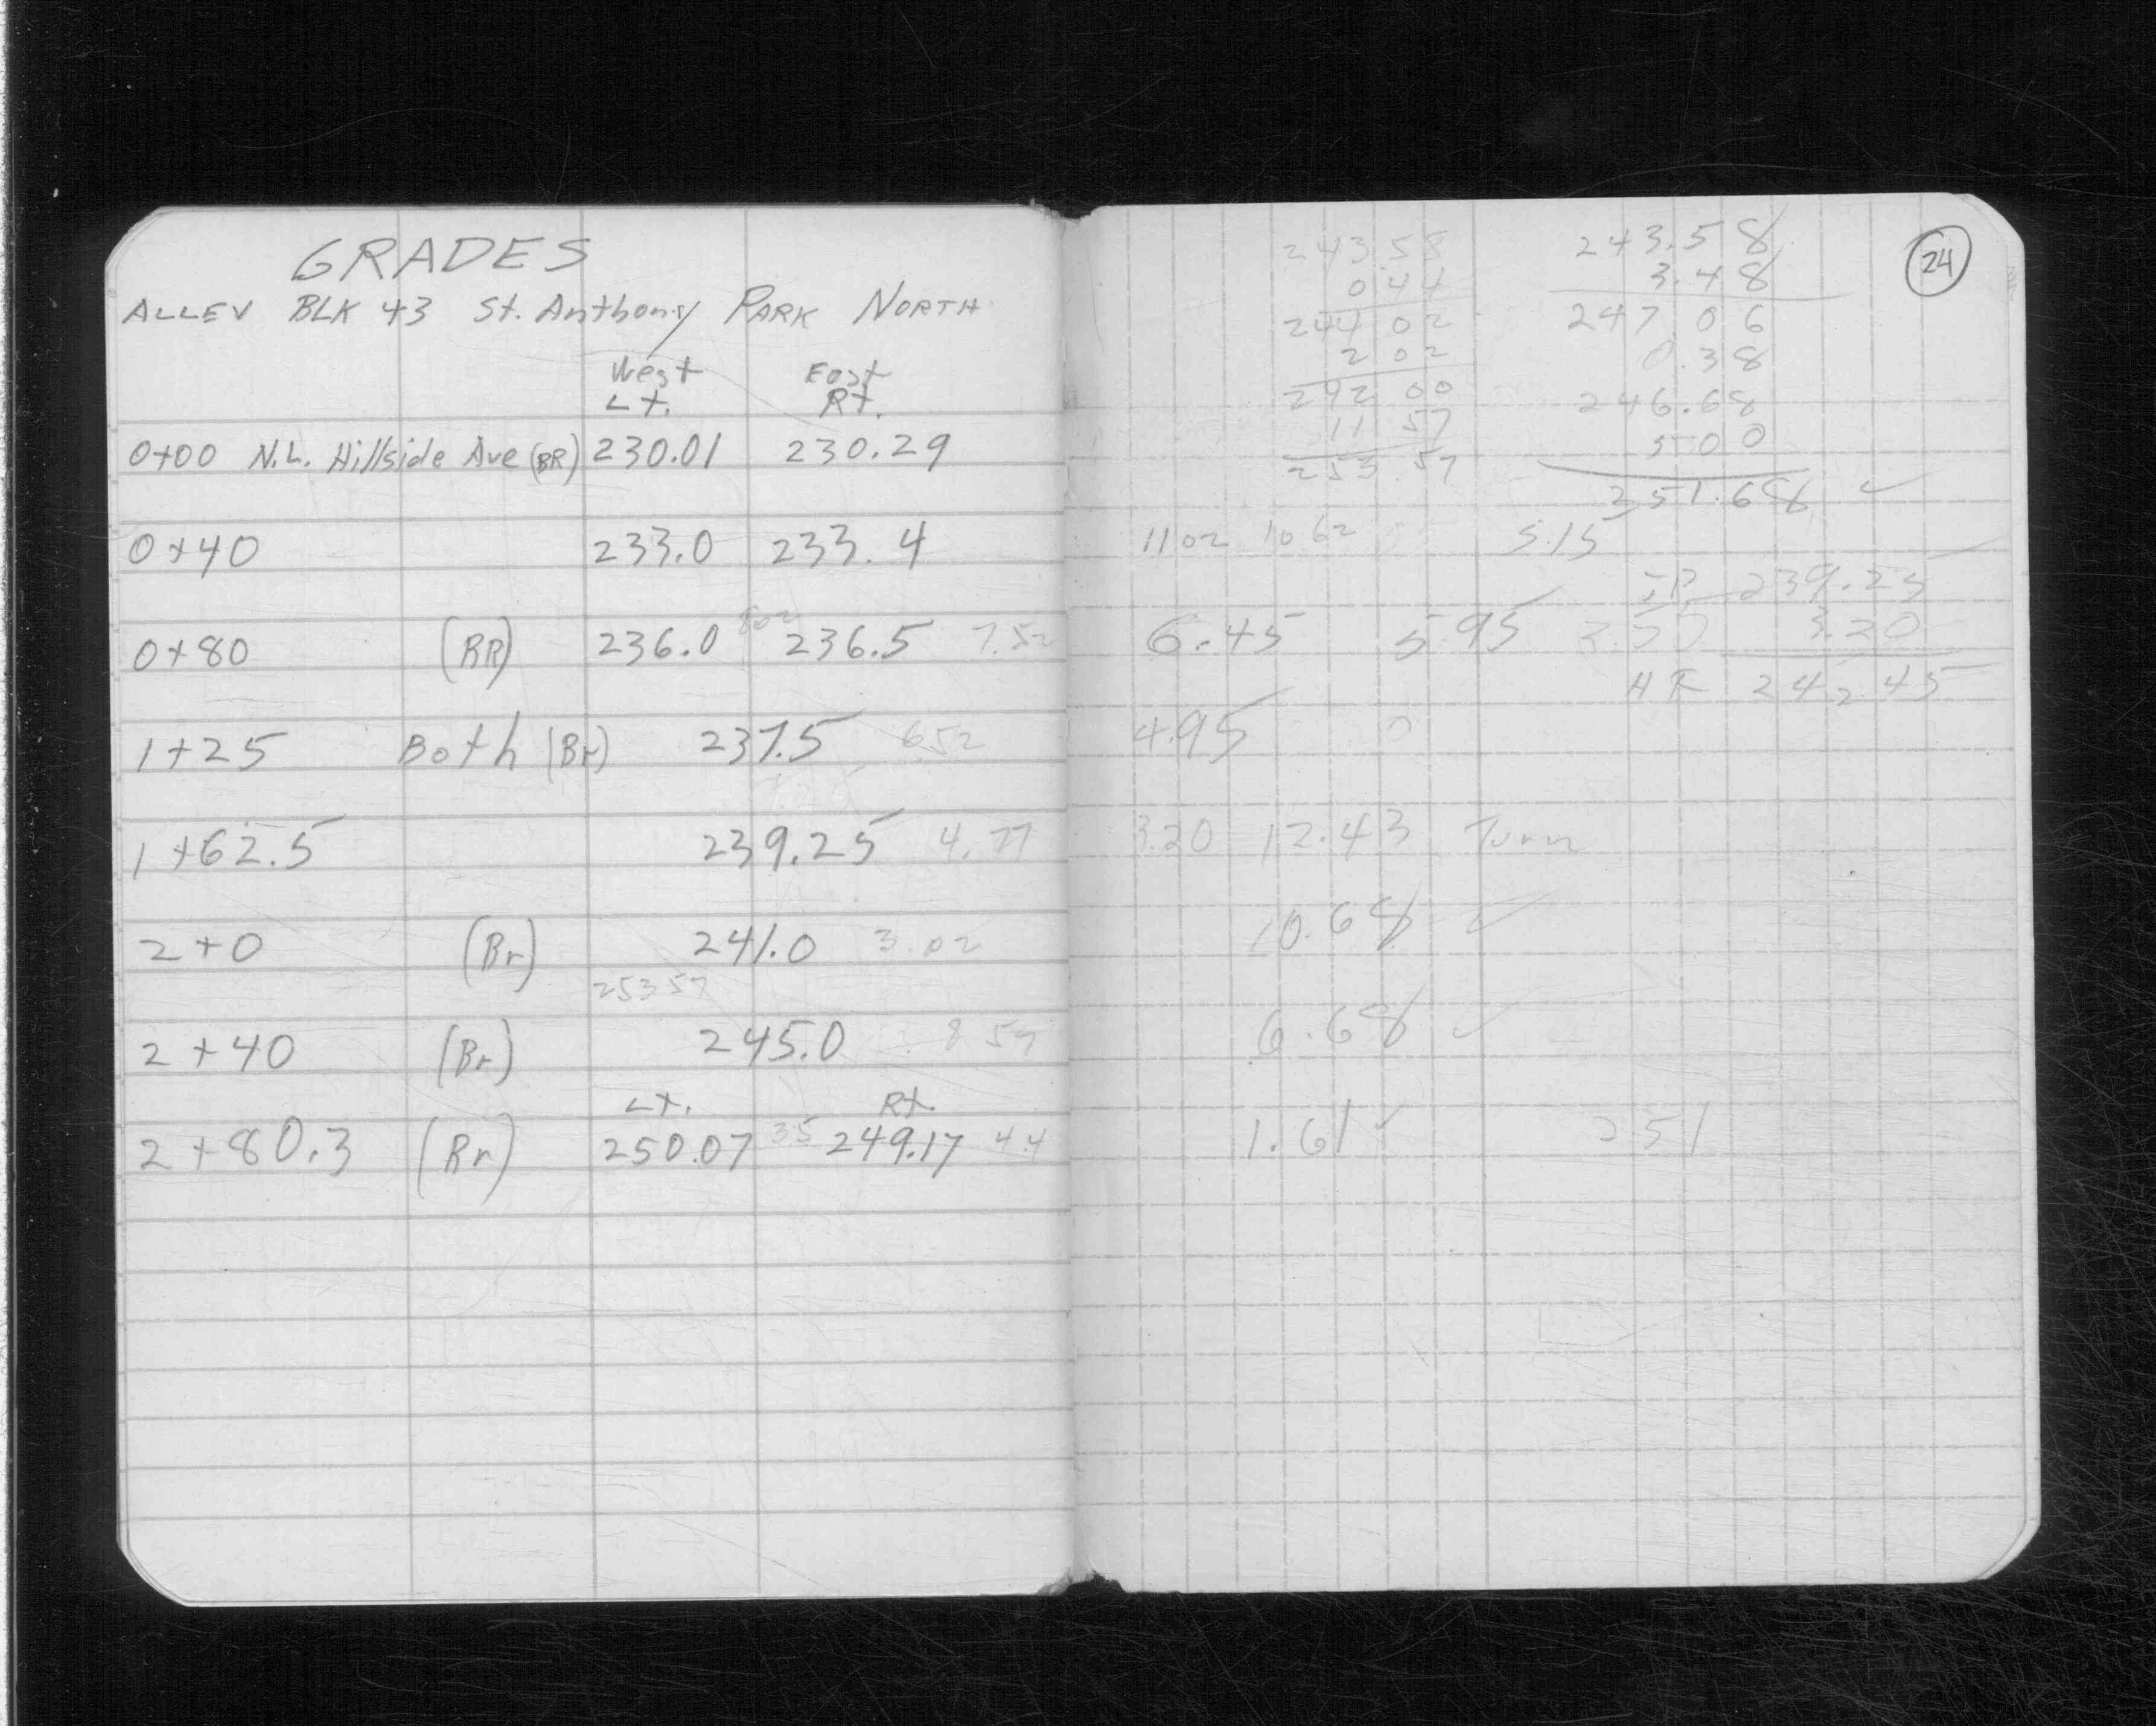 GRADES
ALLEY BLK 43 St. Anthony PARK NORTH
West East
Lt. Rt.
0+00 N.L. Hillside Ave (BR) 230.01 230.29
0+40 233.0 233.4
0+80 (BR) 236.0 802 236.5 7.52
1+25 Both (Br) 237.5 652
1+62.5 239.25 4.77
2+0 (Br) 241.0 3.02
253 57
2+40 (Br) 245.0 8 57
Lt. Rt.
2+80.3 (Br) 250.07 35 249.17 44
24
243.58
0 44
244 02
2 02
242 00
11 57
253 57
243.58
3.48
247.06
0.38
246.68
5 00
251.68 ✓
11 02 10 62 5.15
TP 239.25
6.45 5.95 3.20
HI 242.45
4.95
3.20 12.43 Turn
10.68 ✓
6.68 ✓
1.61 ✓ 251